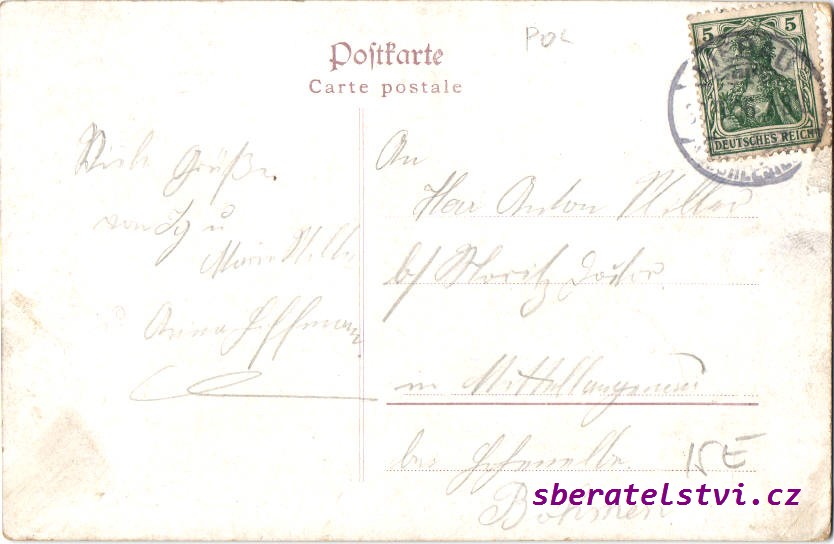 POL
Postkarte
Carte postale
5 5
DEUTSCHES REICH
Viele Grüße
von u
Marie
u Anna Hoffmann
An
Herr Anton
b/ Moritz
in Mittellangenau
bei Hohenelbe
Böhmen
15 E
sberatelstvi.cz